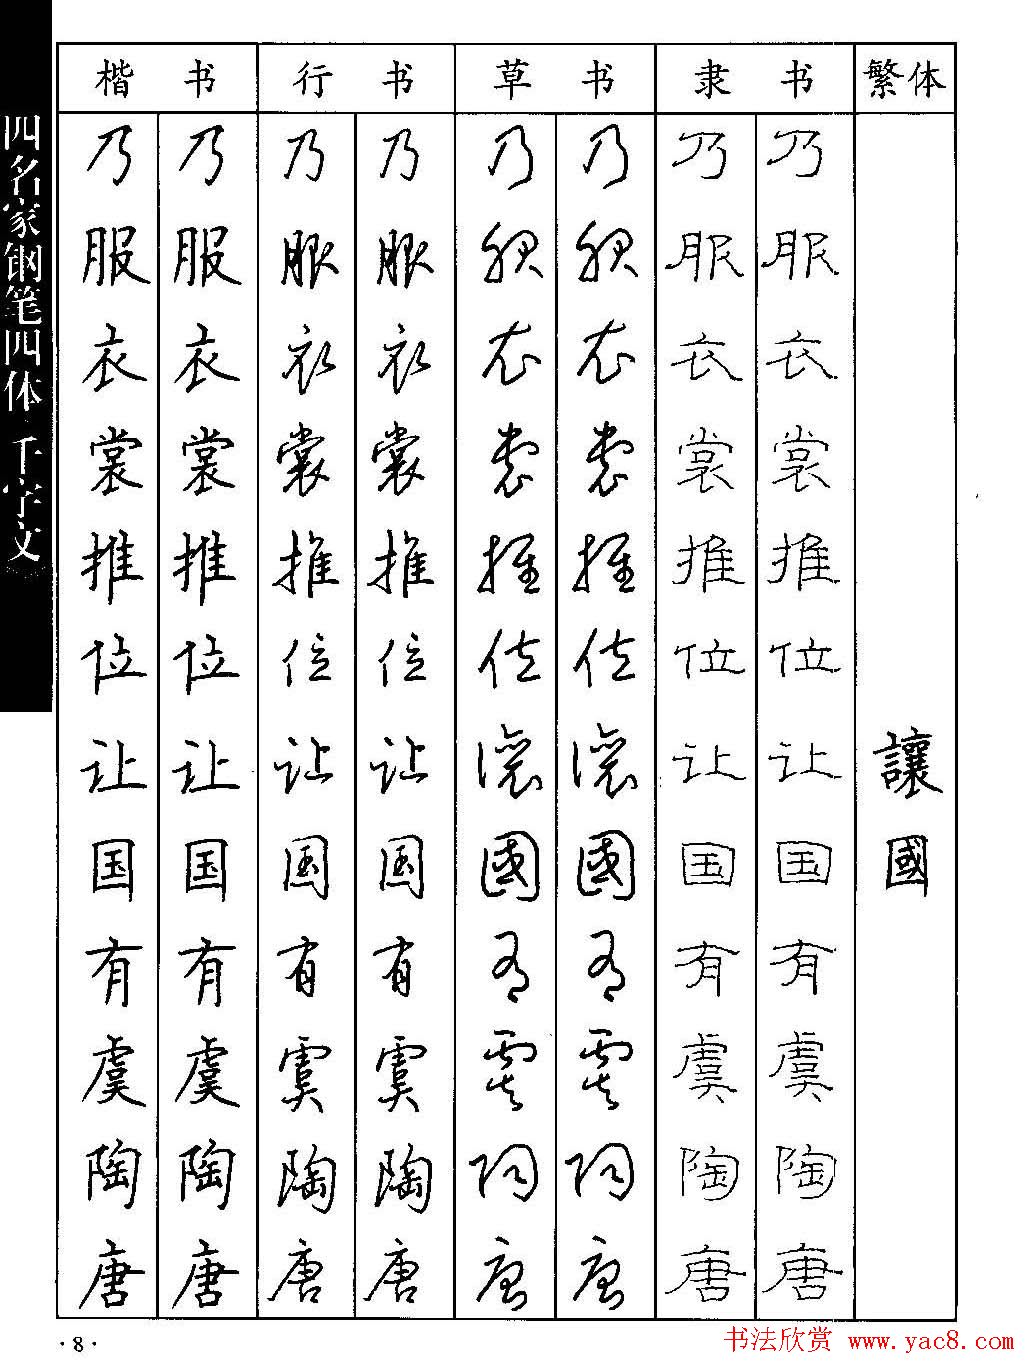 四名家钢笔四体千字文
楷书 行书 草书 隶书 繁体
乃 乃 乃 乃 乃 乃 乃 乃
服 服 服 服 服 服 服 服
衣 衣 衣 衣 衣 衣 衣 衣
裳 裳 裳 裳 裳 裳 裳 裳
推 推 推 推 推 推 推 推
位 位 位 位 位 位 位 位
让 让 让 让 讓 讓 让 让 讓
国 国 国 国 國 國 国 国 國
有 有 有 有 有 有 有 有
虞 虞 虞 虞 虞 虞 虞 虞
陶 陶 陶 陶 陶 陶 陶 陶
唐 唐 唐 唐 唐 唐 唐 唐
·8·
书法欣赏 www.yac8.com